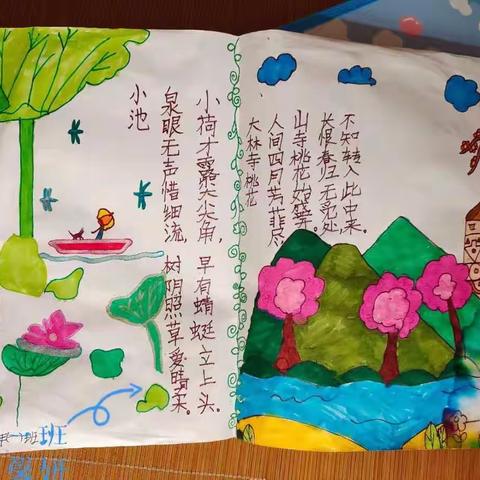 小池
泉眼无声惜细流，树阴照草爱晴柔。
小荷才露尖尖角，早有蜻蜓立上头。
大林寺桃花
人间四月芳菲尽，
山寺桃花始盛开。
长恨春归无觅处，
不知转入此中来。
(一)班 班